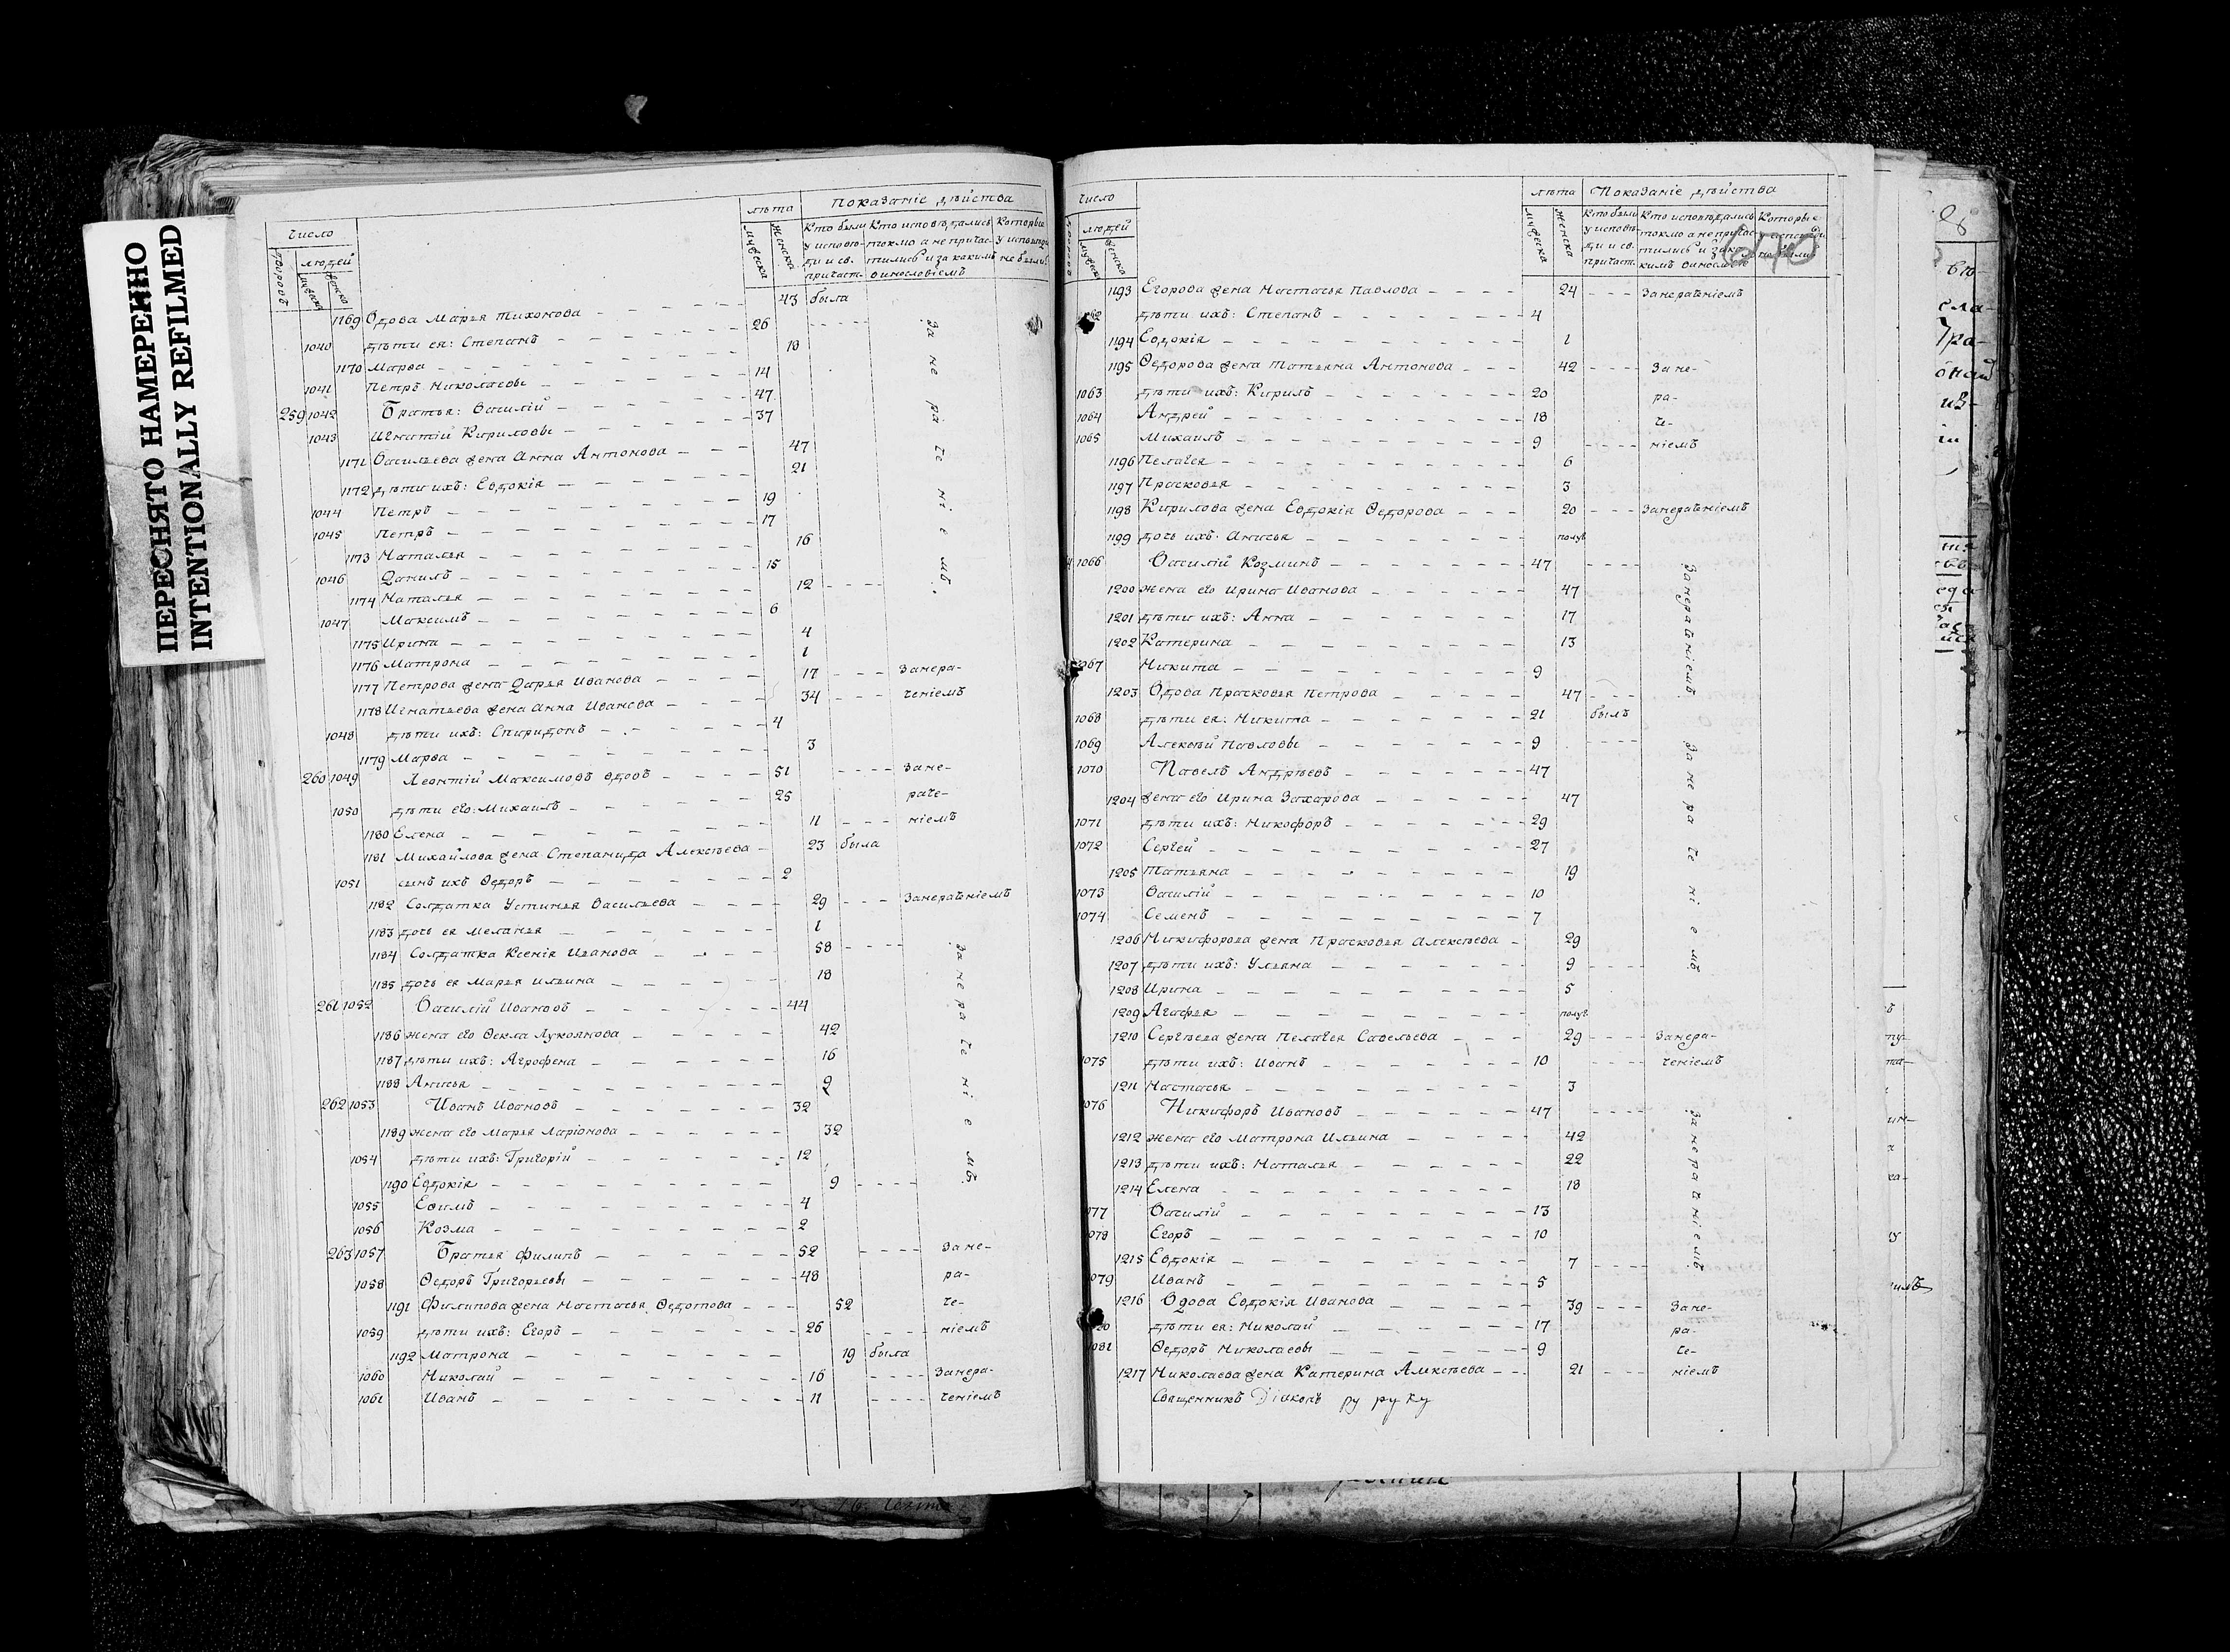 ПЕРЕСНЯТО НАМЕРЕННО
INTENTIONALLY REFILMED
число
людей
лѣта
Показаніе дѣйства
Кто были у исповѣди и св. причаст.
Кто исповѣдались токмо а не причастились и за какимъ винословіемъ
Которые у исповѣди не были
1169 Вдова Марья Тихонова 43 была
1040 дѣти ея: Степанъ 26
1170 Марѳа 18
1041 Петръ Николаевы 14
259 1042 Братья: Василій 47
1043 Игнатій Кириловы 37
1171 Васильева жена Анна Антонова 47
1172 дѣти ихъ: Евдокія 21
1044 Петръ 19
1045 Петръ 17
1173 Наталья 16
1046 Данилъ 15
1174 Наталья 12
1047 Максимъ 6
1175 Ирина 4
1176 Матрона 1
1177 Петрова жена Дарья Иванова 17 Занера-
1178 Игнатьева жена Анна Иванова 34 ченіемъ
1048 дѣти ихъ: Спиридонъ 4
1179 Марѳа 3
260 1049 Леонтій Максимовъ вдовъ 51 Зане-
1050 дѣти его: Михаилъ 25 раче-
1180 Елена 11 ніемъ
1181 Михайлова жена Степанида Алексѣева 23 была
1051 сынъ ихъ Ѳедоръ 2
1182 Солдатка Устинья Васильева 29 Занераченіемъ
1183 дочь ея Меланья 1
1184 Солдатка Ксенія Иванова 58
1185 дочь ея Марья Ильина 18
261 1052 Василій Ивановъ 44
1186 жена его Ѳекла Лукоянова 42
1187 дѣти ихъ: Агрофена 16
1188 Анисья 9
262 1053 Иванъ Ивановъ 32
1189 жена его Марья Ларіонова 32
1054 дѣти ихъ: Григорій 12
1190 Евдокія 9
1055 Евимъ 4
1056 Козма 2
263 1057 Братья Филипъ 52 Зане-
1058 Ѳедоръ Григорьевы 48 ра-
1191 Филипова жена Настасья Ѳедотова 52 че-
1059 дѣти ихъ: Егоръ 26 ніемъ
1192 Матрона 19 была
1060 Николай 16 Занера-
1061 Иванъ 11 ченіемъ
За не ра че ні е мъ.
За не ра че ні е мъ.
число
людей
лѣта
Показаніе дѣйства
Кто были у исповѣди и св. причаст.
Кто исповѣдались токмо а не причастились и за какимъ винословіемъ
Которые
670
1193 Егорова жена Настасья Павлова 24 Занераченіемъ
дѣти ихъ: Степанъ 4
1194 Евдокія 1
1195 Ѳедорова жена Татьяна Антонова 42 Зане-
1063 дѣти ихъ: Кирилъ 20 ра-
1064 Андрей 18 че-
1065 Михаилъ 9 ніемъ
1196 Пелагея 6
1197 Прасковья 3
1198 Кирилова жена Евдокія Ѳедорова 20 Занераченіемъ
1199 дочь ихъ: Анисья полуг
1066 Василій Козминъ 47
1200 жена его Ирина Иванова 47
1201 дѣти ихъ: Анна 17
1202 Катерина 13
1067 Никита 9
1203 Вдова Прасковья Петрова 47
1068 дѣти ея: Никита 21 былъ
1069 Алексѣй Павловы 9
1070 Павелъ Андрѣевъ 47
1204 жена его Ирина Захарова 47
1071 дѣти ихъ: Никофоръ 29
1072 Сергей 27
1205 Татьяна 19
1073 Василій 10
1074 Семенъ 7
1206 Никифорова жена Прасковья Алексѣева 29
1207 дѣти ихъ: Ульяна 9
1208 Ирина 5
1209 Агафья полуг
1210 Сергѣева жена Пелагея Савельева 29 Занера-
1075 дѣти ихъ: Иванъ 10 ченіемъ
1211 Настасья 3
1076 Никифоръ Ивановъ 47
1212 жена его Матрона Ильина 42
1213 дѣти ихъ: Наталья 22
1214 Елена 18
077 Василій 13
078 Егоръ 10
1215 Евдокія 7
079 Иванъ 5
1216 Вдова Евдокія Иванова 39 Зане-
дѣти ея: Николай 17 ра-
081 Ѳедоръ Николаевы 9 че-
1217 Николаева жена Катерина Алексѣева 21 ніемъ
Занераченіемъ
За не ра че ні е мъ
Занераченіемъ
Священникъ Діаконъ